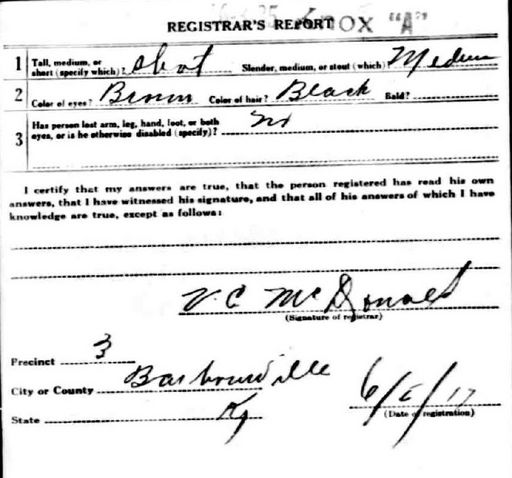 REGISTRAR'S REPORT KNOX "A"
1 Tall, medium, or short (specify which)? Short Slender, medium, or stout (which)? Medium
2 Color of eyes? Brown Color of hair? Black Bald?
3 Has person lost arm, leg, hand, foot, or both eyes, or is he otherwise disabled (specify)? No
I certify that my answers are true, that the person registered has read his own
answers, that I have witnessed his signature, and that all of his answers of which I have
knowledge are true, except as follows:
V. C McDonald
(Signature of registrar)
Precinct 3
City or County Barbourville
State Ky
6/5/17
(Date of registration)